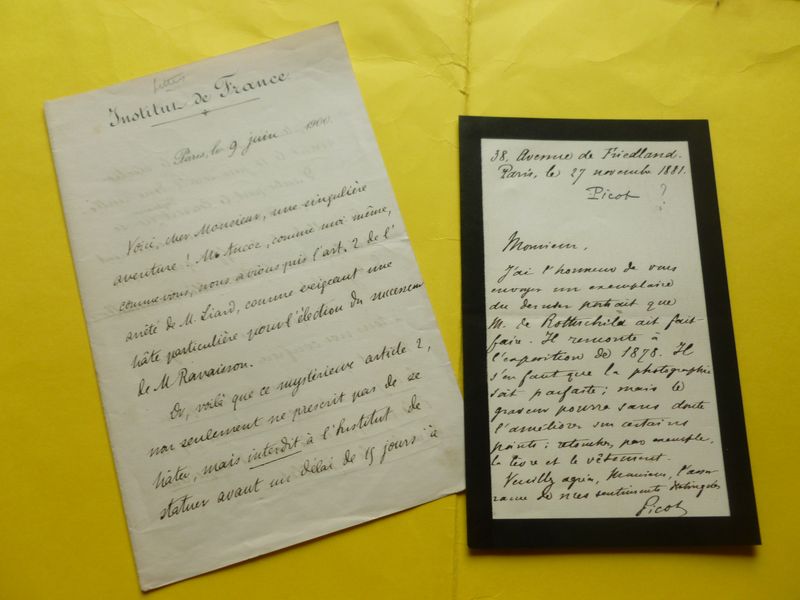 lettres
Institut de France
Paris, le 9 juin 1900.
Voici, cher Monsieur, une singulière
aventure ! M. Aucoc, comme moi même,
comme vous, nous avions pris l'art. 2 de l'
arrêté de M. Liard, comme exigeant une
hâte particulière pour l'élection du successeur
de M. Ravaisson.
Or, voilà que ce mystérieux article 2,
non seulement ne prescrit pas de se
hâter, mais interdit à l'Institut de
statuer avant un délai de 15 jours à
38, Avenue de Friedland.
Paris, le 27 novembre 1881.
Picot ?
Monsieur,
J'ai l'honneur de vous
envoyer un exemplaire
du dernier portrait que
M. de Rothschild ait fait
faire. Il remonte à
l'exposition de 1878. Il
s'en faut que la photographie
soit parfaite ; mais le
graveur pourra sans doute
l'améliorer sur certains
points ; par exemple,
la lèvre et le vêtement.
Veuillez agréer, Monsieur, l'assu
rance de mes sentiments distingués
Picot